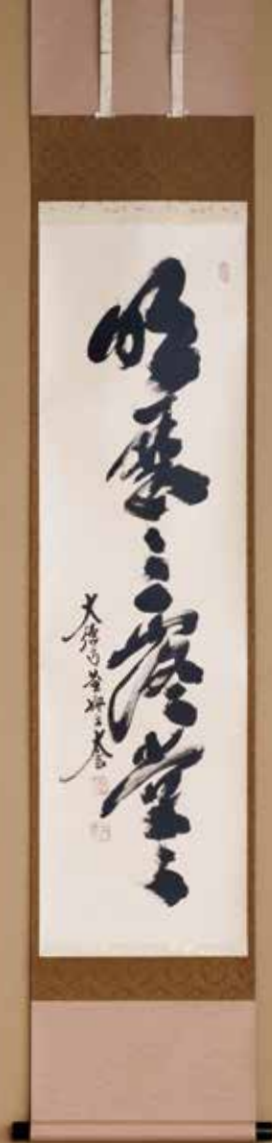 明歴々露堂々
大徳寺黄梅